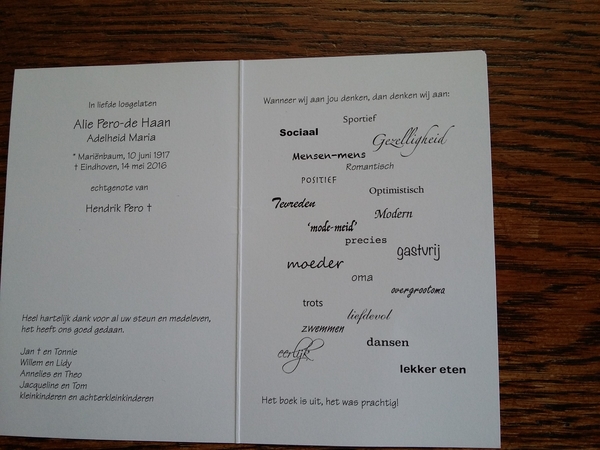 In liefde losgelaten
Alie Pero-de Haan
Adelheid Maria
* Mariënbaum, 10 juni 1917
† Eindhoven, 14 mei 2016
echtgenote van
Hendrik Pero †
Heel hartelijk dank voor al uw steun en medeleven,
het heeft ons goed gedaan.
Jan † en Tonnie
Willem en Lidy
Annelies en Theo
Jacqueline en Tom
kleinkinderen en achterkleinkinderen
Wanneer wij aan jou denken, dan denken wij aan:
Sportief
Sociaal
Gezelligheid
Mensen-mens
Romantisch
POSITIEF
Optimistisch
Tevreden
Modern
'mode-meid'
precies
gastvrij
moeder
oma
overgrootoma
trots
liefdevol
zwemmen
dansen
eerlijk
lekker eten
Het boek is uit, het was prachtig!